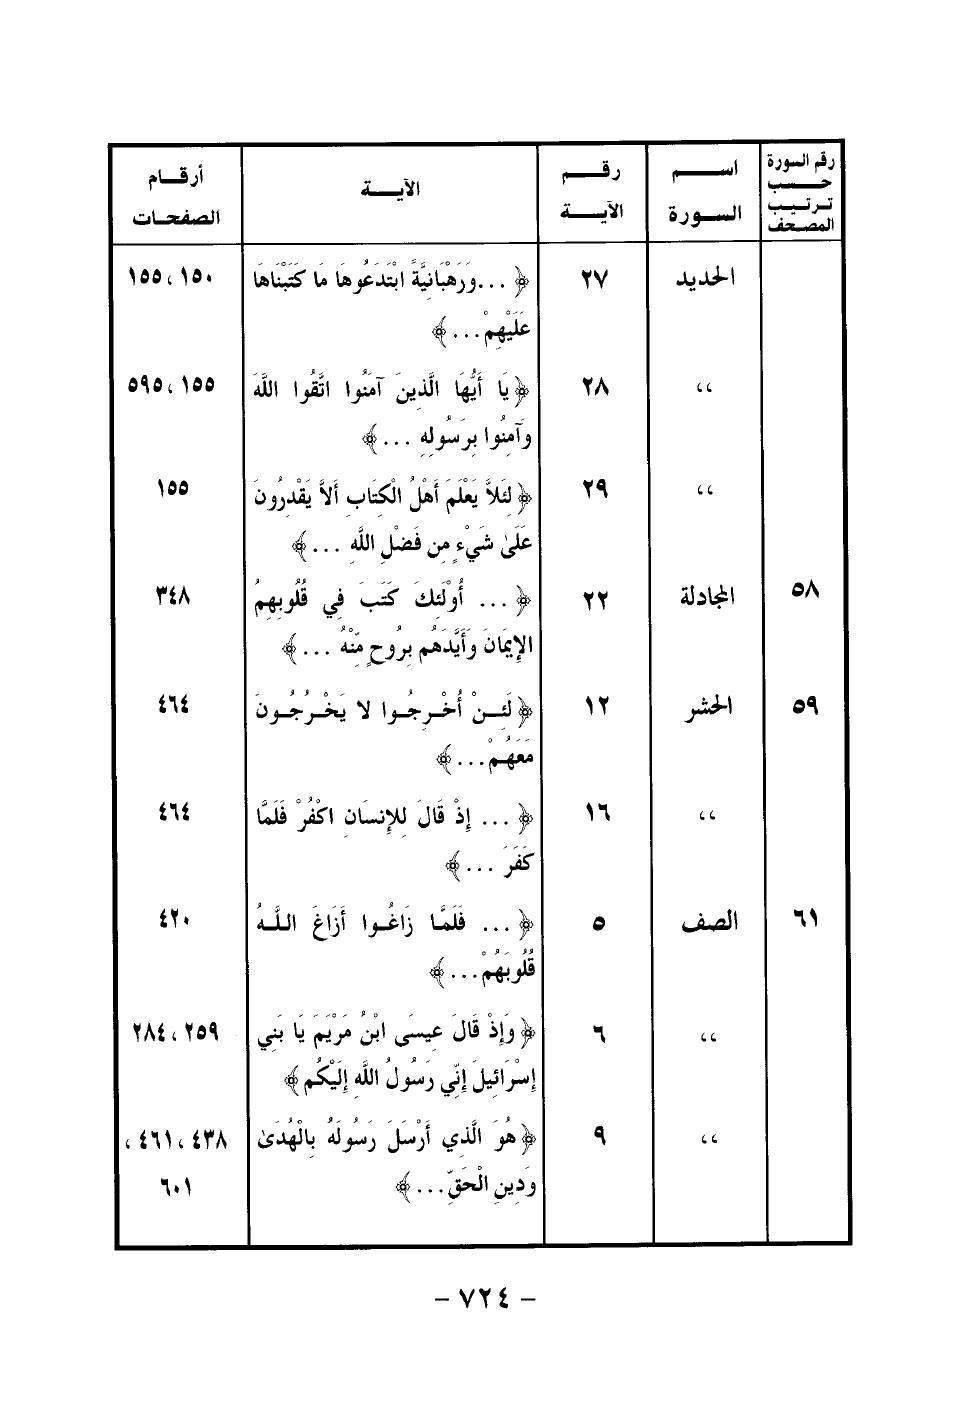 رقم السورة حسب ترتيب المصحف | اسم السورة | رقم الآية | الآية | أرقام الصفحات
الحديد | ٢٧ | ﴿ ...وَرَهْبَانِيَّةً ابْتَدَعُوهَا مَا كَتَبْنَاهَا | ١٥٠ ، ١٥٥
عَلَيْهِمْ... ﴾
،، | ٢٨ | ﴿يَا أَيُّهَا الَّذِينَ آمَنُوا اتَّقُوا اللَّهَ | ١٥٥ ، ٥٩٥
وَآمِنُوا بِرَسُولِهِ ... ﴾
،، | ٢٩ | ﴿لِئَلاَّ يَعْلَمَ أَهْلُ الْكِتَابِ أَلاَّ يَقْدِرُونَ | ١٥٥
عَلَىٰ شَيْءٍ مِن فَضْلِ اللَّهِ ... ﴾
٥٨ | المجادلة | ٢٢ | ﴿ ... أُوْلَئِكَ كَتَبَ فِي قُلُوبِهِمُ | ٣٤٨
الإِيمَانَ وَأَيَّدَهُم بِرُوحٍ مِّنْهُ ... ﴾
٥٩ | الحشر | ١٢ | ﴿لَئِـنْ أُخْـرِجُـوا لا يَخْـرُجُـونَ | ٤٦٤
مَعَهُـمْ... ﴾
،، | ١٦ | ﴿ ... إِذْ قَالَ لِلإِنسَانِ اكْفُرْ فَلَمَّا | ٤٦٤
كَفَرَ ... ﴾
٦١ | الصف | ٥ | ﴿ ... فَلَمَّا زَاغُـوا أَزَاغَ اللَّـهُ | ٤٢٠
قُلُوبَهُمْ... ﴾
،، | ٦ | ﴿وَإِذْ قَالَ عِيسَى ابْنُ مَرْيَمَ يَا بَنِي | ٢٥٩ ، ٢٨٤
إِسْرَائِيلَ إِنِّي رَسُولُ اللَّهِ إِلَيْكُم ﴾
،، | ٩ | ﴿هُوَ الَّذِي أَرْسَلَ رَسُولَهُ بِالْهُدَىٰ | ٤٣٨ ، ٤٦١ ،
وَدِينِ الْحَقِّ... ﴾ | ٦٠١
- ٧٢٤ -